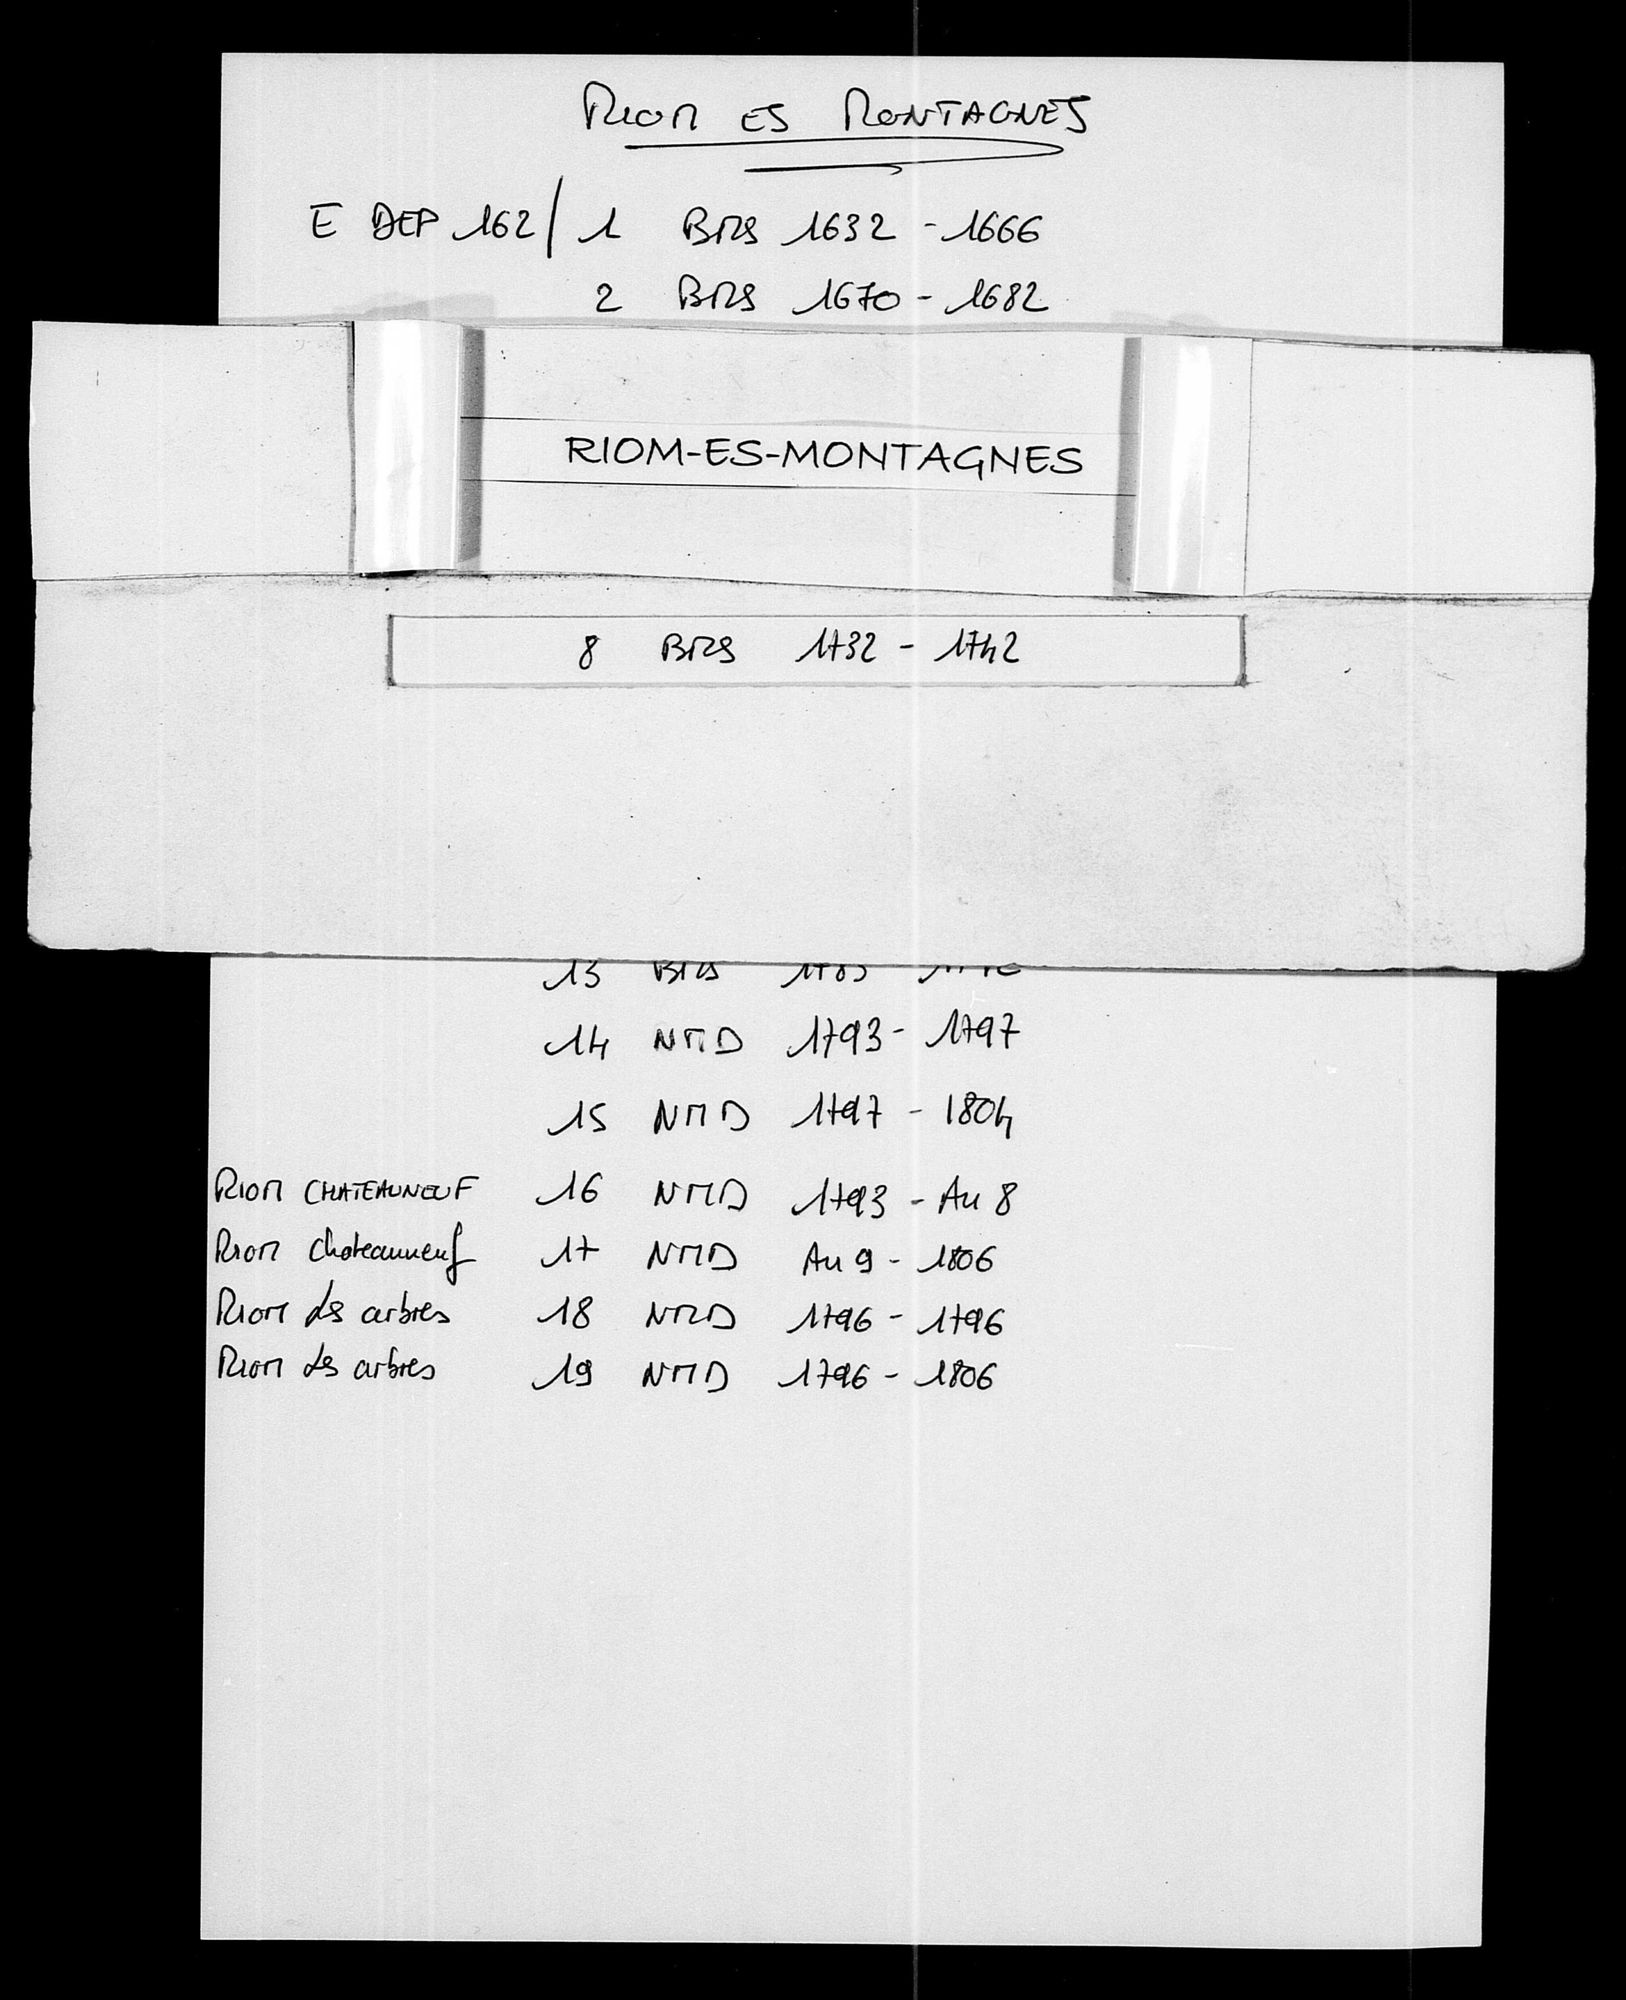 RIOM ES MONTAGNES
E DEP 162/ 1 BMS 1632 - 1666
2 BMS 1670 - 1682
RIOM-ES-MONTAGNES
8 BMS 1732 - 1742
13 BMS
14 NMD 1793 - 1797
15 NMD 1797 - 1804
RIOM CHATEAUNEUF 16 NMD 1793 - An 8
RIOM chateauneuf 17 NMD An 9 - 1806
RIOM les arbres 18 NMD 1796 - 1796
RIOM les arbres 19 NMD 1796 - 1806